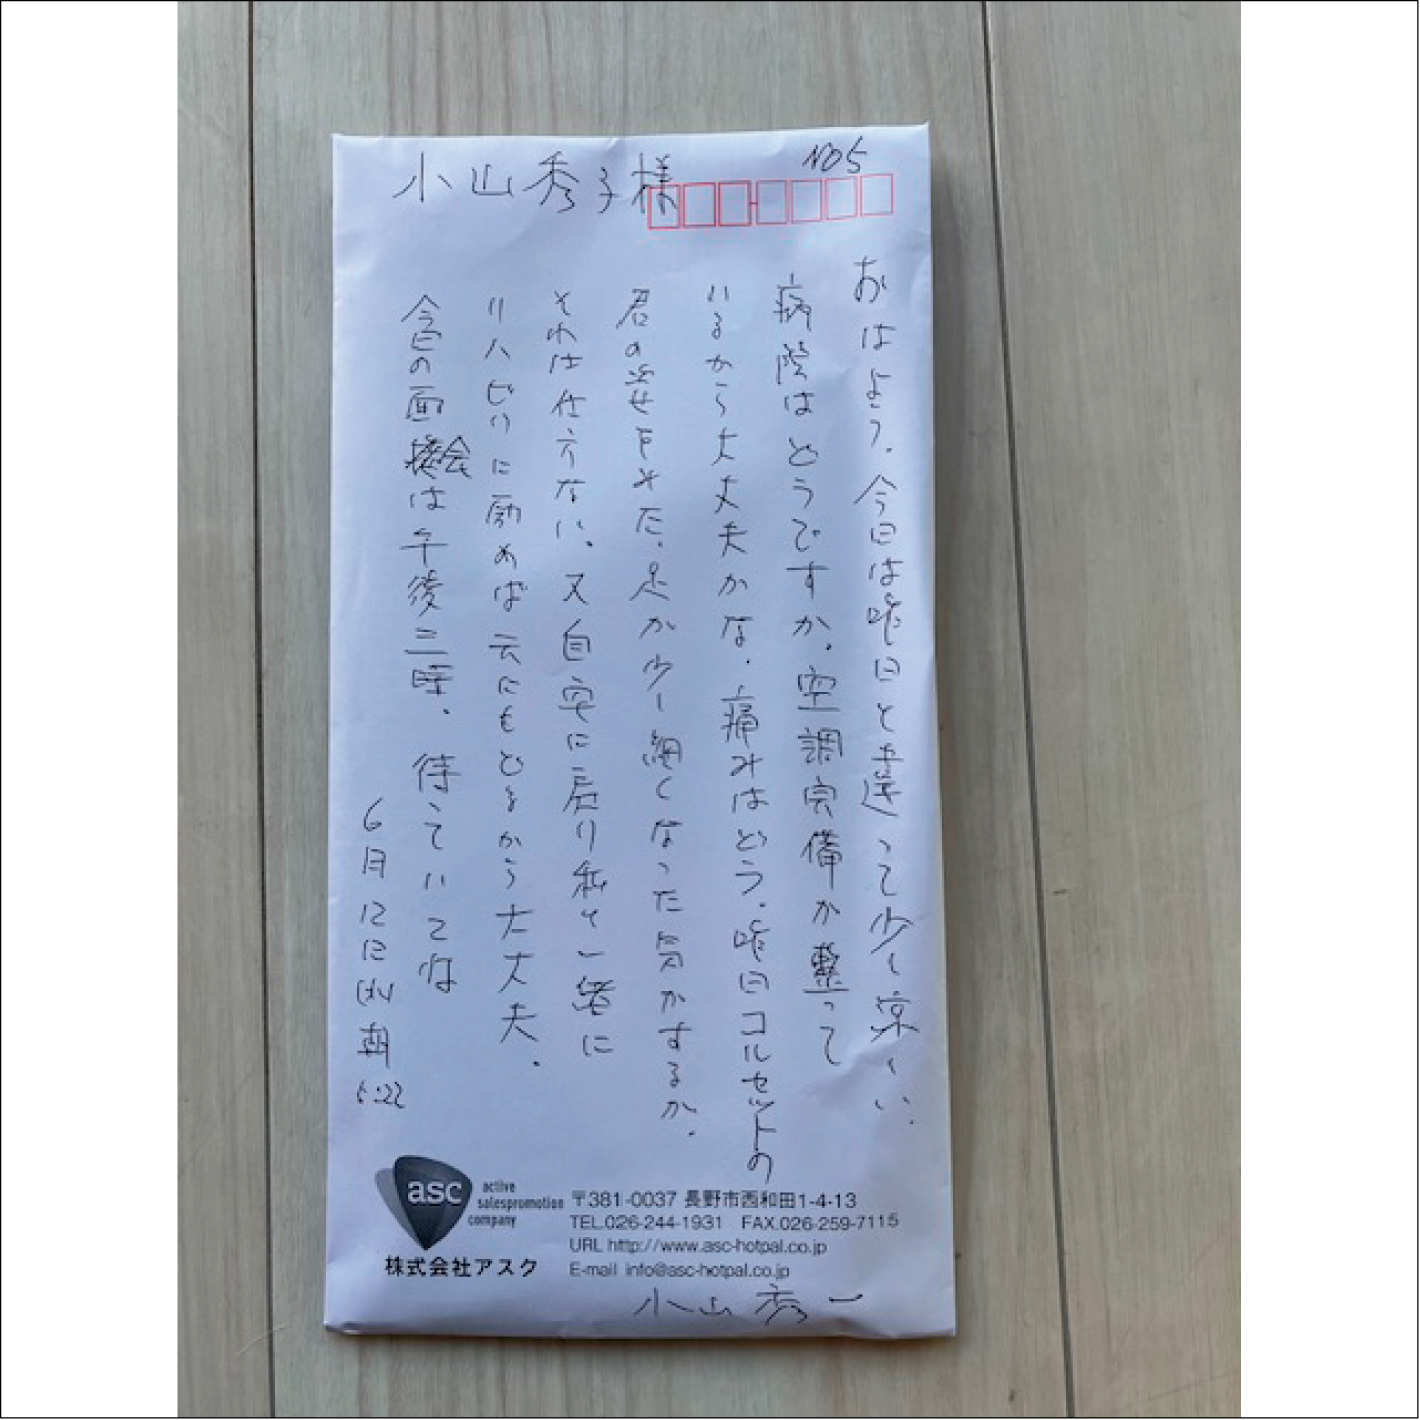 NO5
小山秀子様
おはよう。今日は昨日と違って少し涼しい。
病院はどうですか。空調完備が整って
いるから大丈夫かな。痛みはどう。昨日コルセットの
君の姿を見た。足が少し細くなった気がするが、
それは仕方ない。又自宅に戻り私と一緒に
リハビリに励めば元にもどるから大丈夫。
今日の面会は午後三時。待っていてね
6月12日(水)朝
asc
active
salespromotion
company
株式会社アスク
〒381-0037 長野市西和田1-4-13
TEL.026-244-1931 FAX.026-259-7115
URL http://www.asc-hotpal.co.jp
E-mail info@asc-hotpal.co.jp
小山秀一